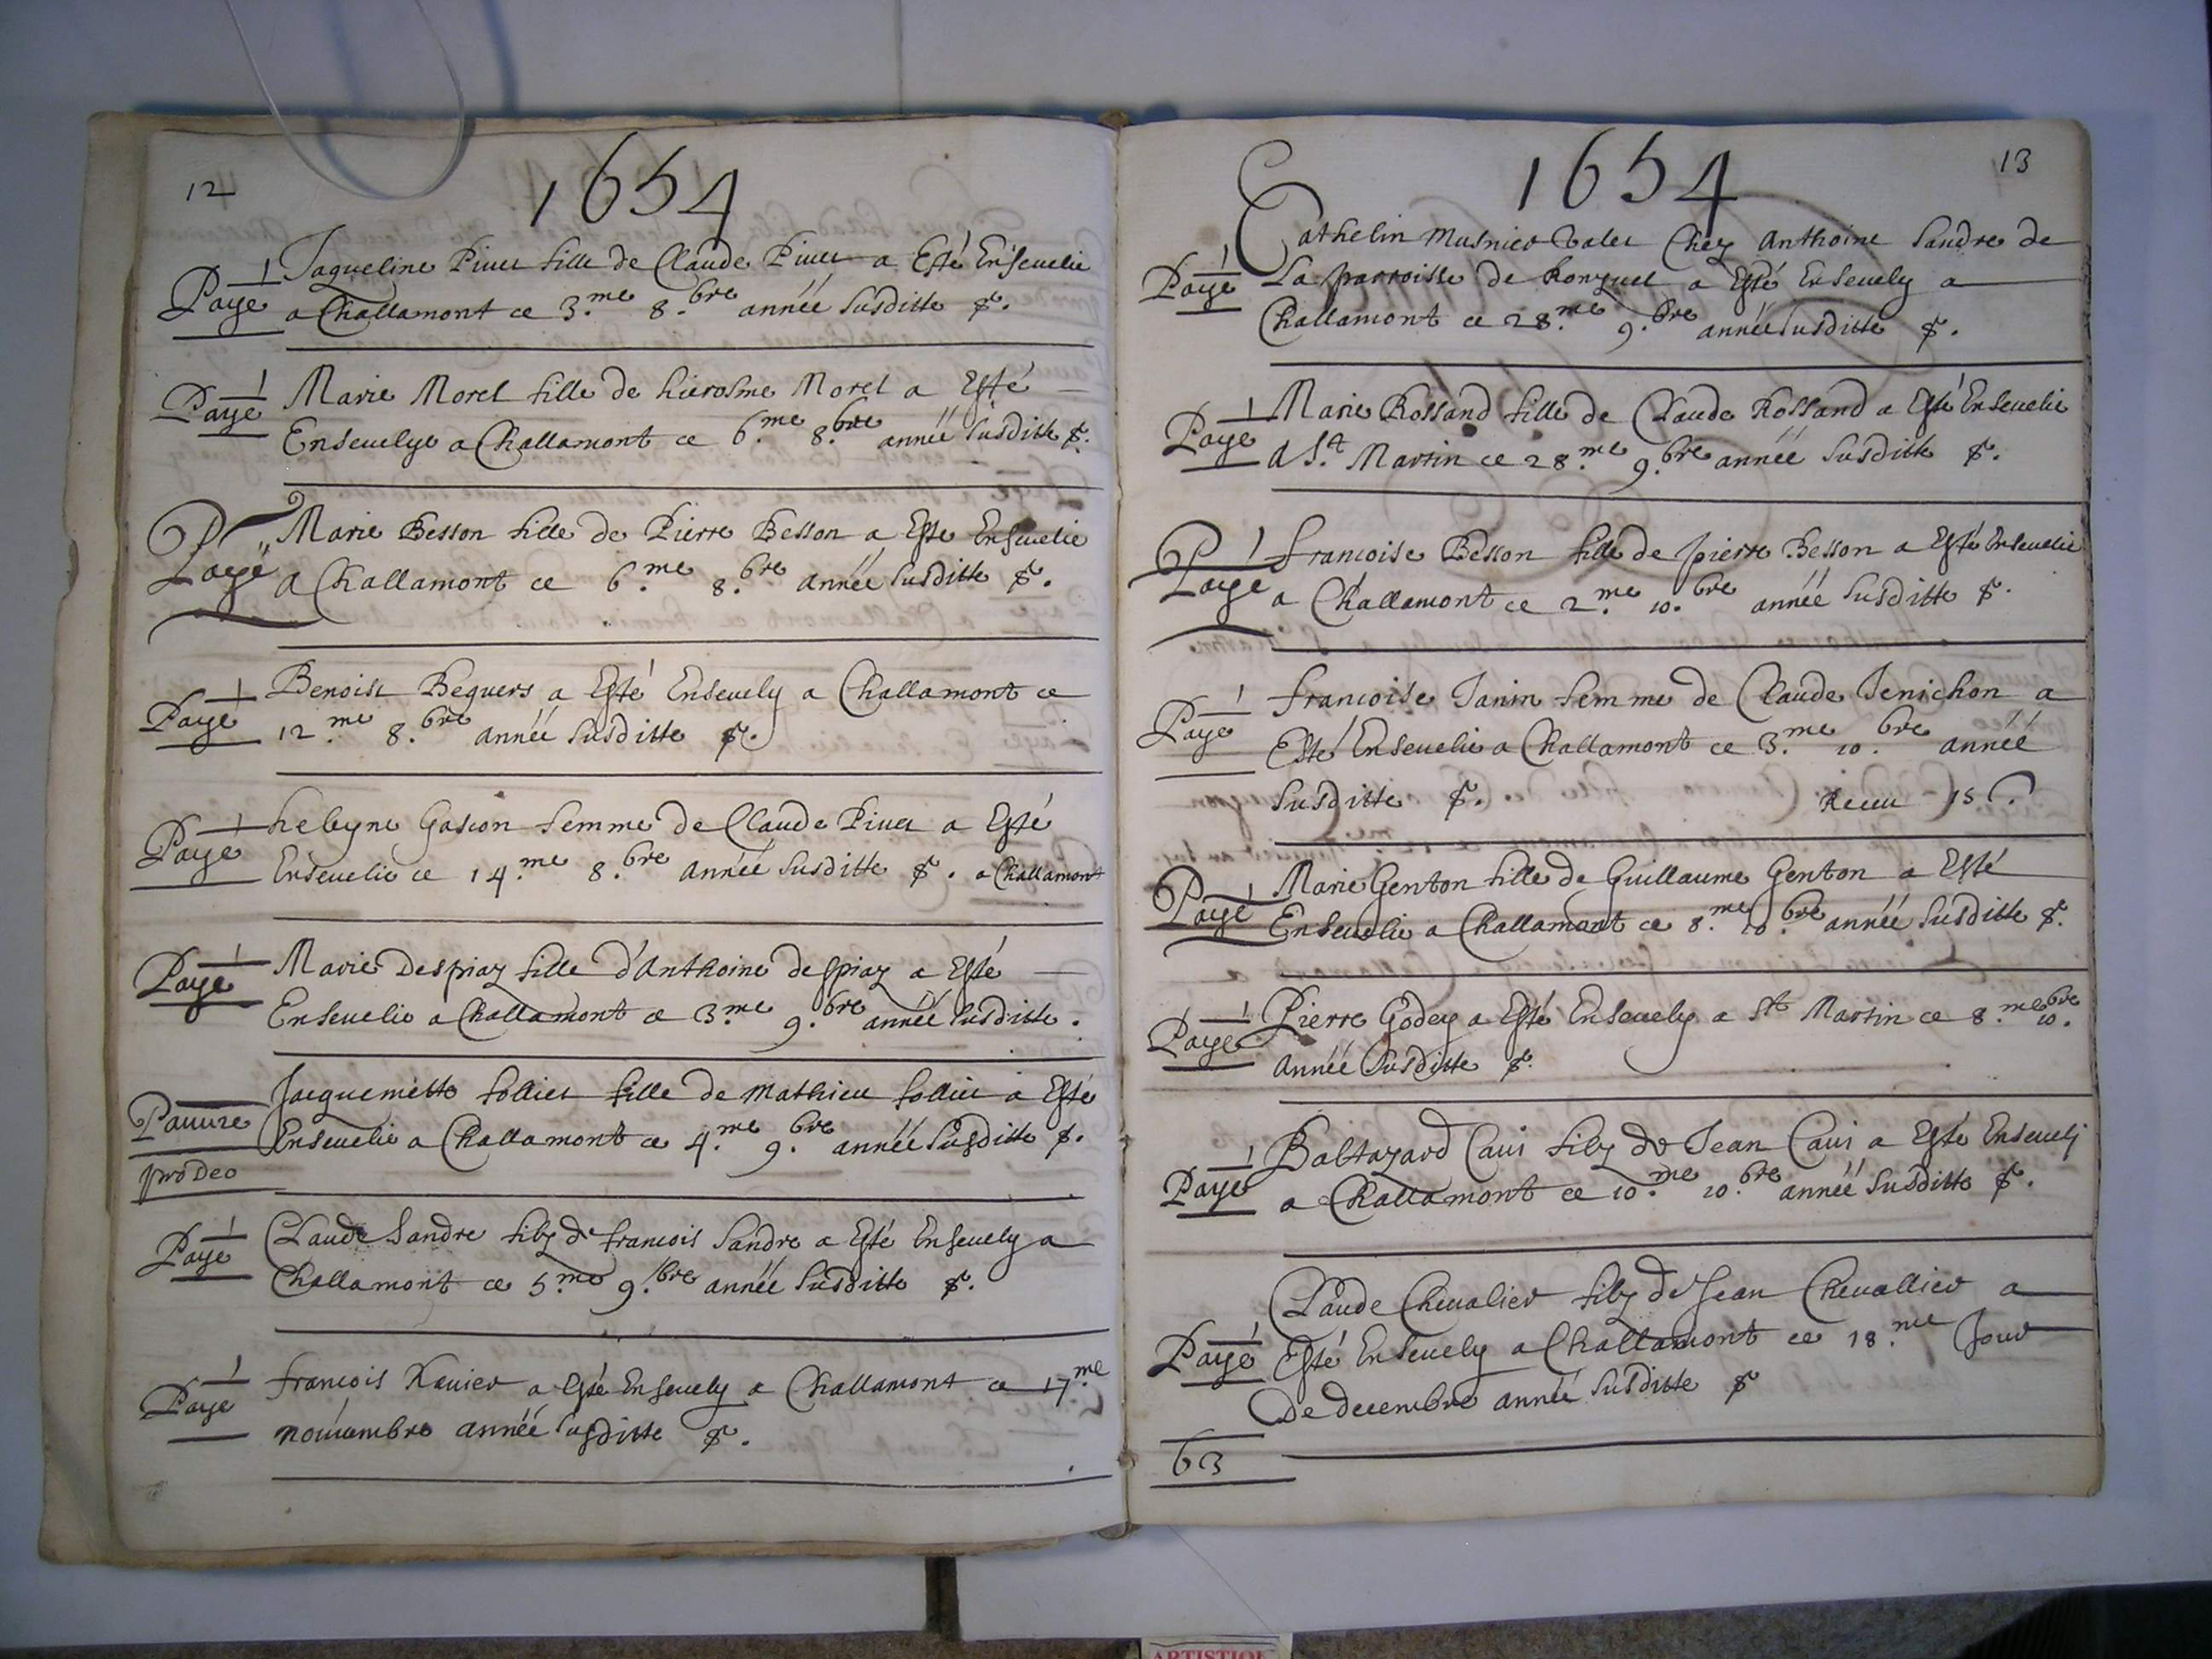 12
1654
Jaqueline Piuet fille de Claude Piuet a Esté Ensevelie
Payé
a Challamont ce 3.me 8.bre année susditte &.
Marie Morel fille de hierosme Morel a Esté
Payé
Enseuelye a Challamont ce 6.me 8.bre année susditte &.
Marie Besson fille de Pierre Besson a Esté Enseuelie
Payé
a Challamont ce 6.me 8.bre année susditte &.
Benoist Beguers a Esté Enseuely a Challamont ce
Payé
12.me 8.bre année susditte &.
heleyne Gascon femme de Claude Piuet a Esté
Payé
Enseuelie ce 14.me 8.bre année susditte &. a Challamont
Marie Despiaz fille d'Anthoine despiaz a Esté
Payé
Enseuelie a Challamont ce 3.me 9.bre année susditte.
Jaquemette follier fille de Mathieu follier a Esté
Pauure
Enseuelie a Challamont ce 4.me 9.bre année susditte &.
pro Deo
Claude Sandre filz de francois Sandre a Esté Enseuely a
Payé
Challamont ce 5.me 9.bre année susditte &.
francois Xauier a Esté Enseuely a Challamont ce 17.me
Payé
nouuambre année susditte &.
13
1654
Cathelin Musnier Valet Chez Anthoine Sandre de
Payé
La parroisse de Ronzuel a Esté Enseuely a
Challamont ce 28.me 9.bre année susditte &.
Marie Rossand fille de Claude Rossand a Esté Enseuelie
Payé
a St. Martin ce 28.me 9.bre année susditte &.
francoise Besson fille de pierre Besson a Esté Enseuelie
Payé
a Challamont ce 2.me 10.bre année susditte &.
francoise Janin femme de Claude Jenichon a
Payé
Esté Enseuelie a Challamont ce 3.me 10.bre année
susditte &. Receu 15
Marie Genton fille de Guillaume Genton a Esté
Payé
Enseuelie a Challamont ce 8.me 10.bre année susditte &.
Pierre Godey a Esté Enseuely a St Martin ce 8.me 10.bre
Payé
année susditte &.
Baltazard Caui filz de Jean Caui a Esté Enseuely
Payé
a Challamont ce 10.me 10.bre année susditte &.
Claude Cheualier filz de Jean Cheuallier a
Payé
Esté Enseuely a Challamont ce 18.me Jour
de decembre année susditte &
63
ARTISTIQUE